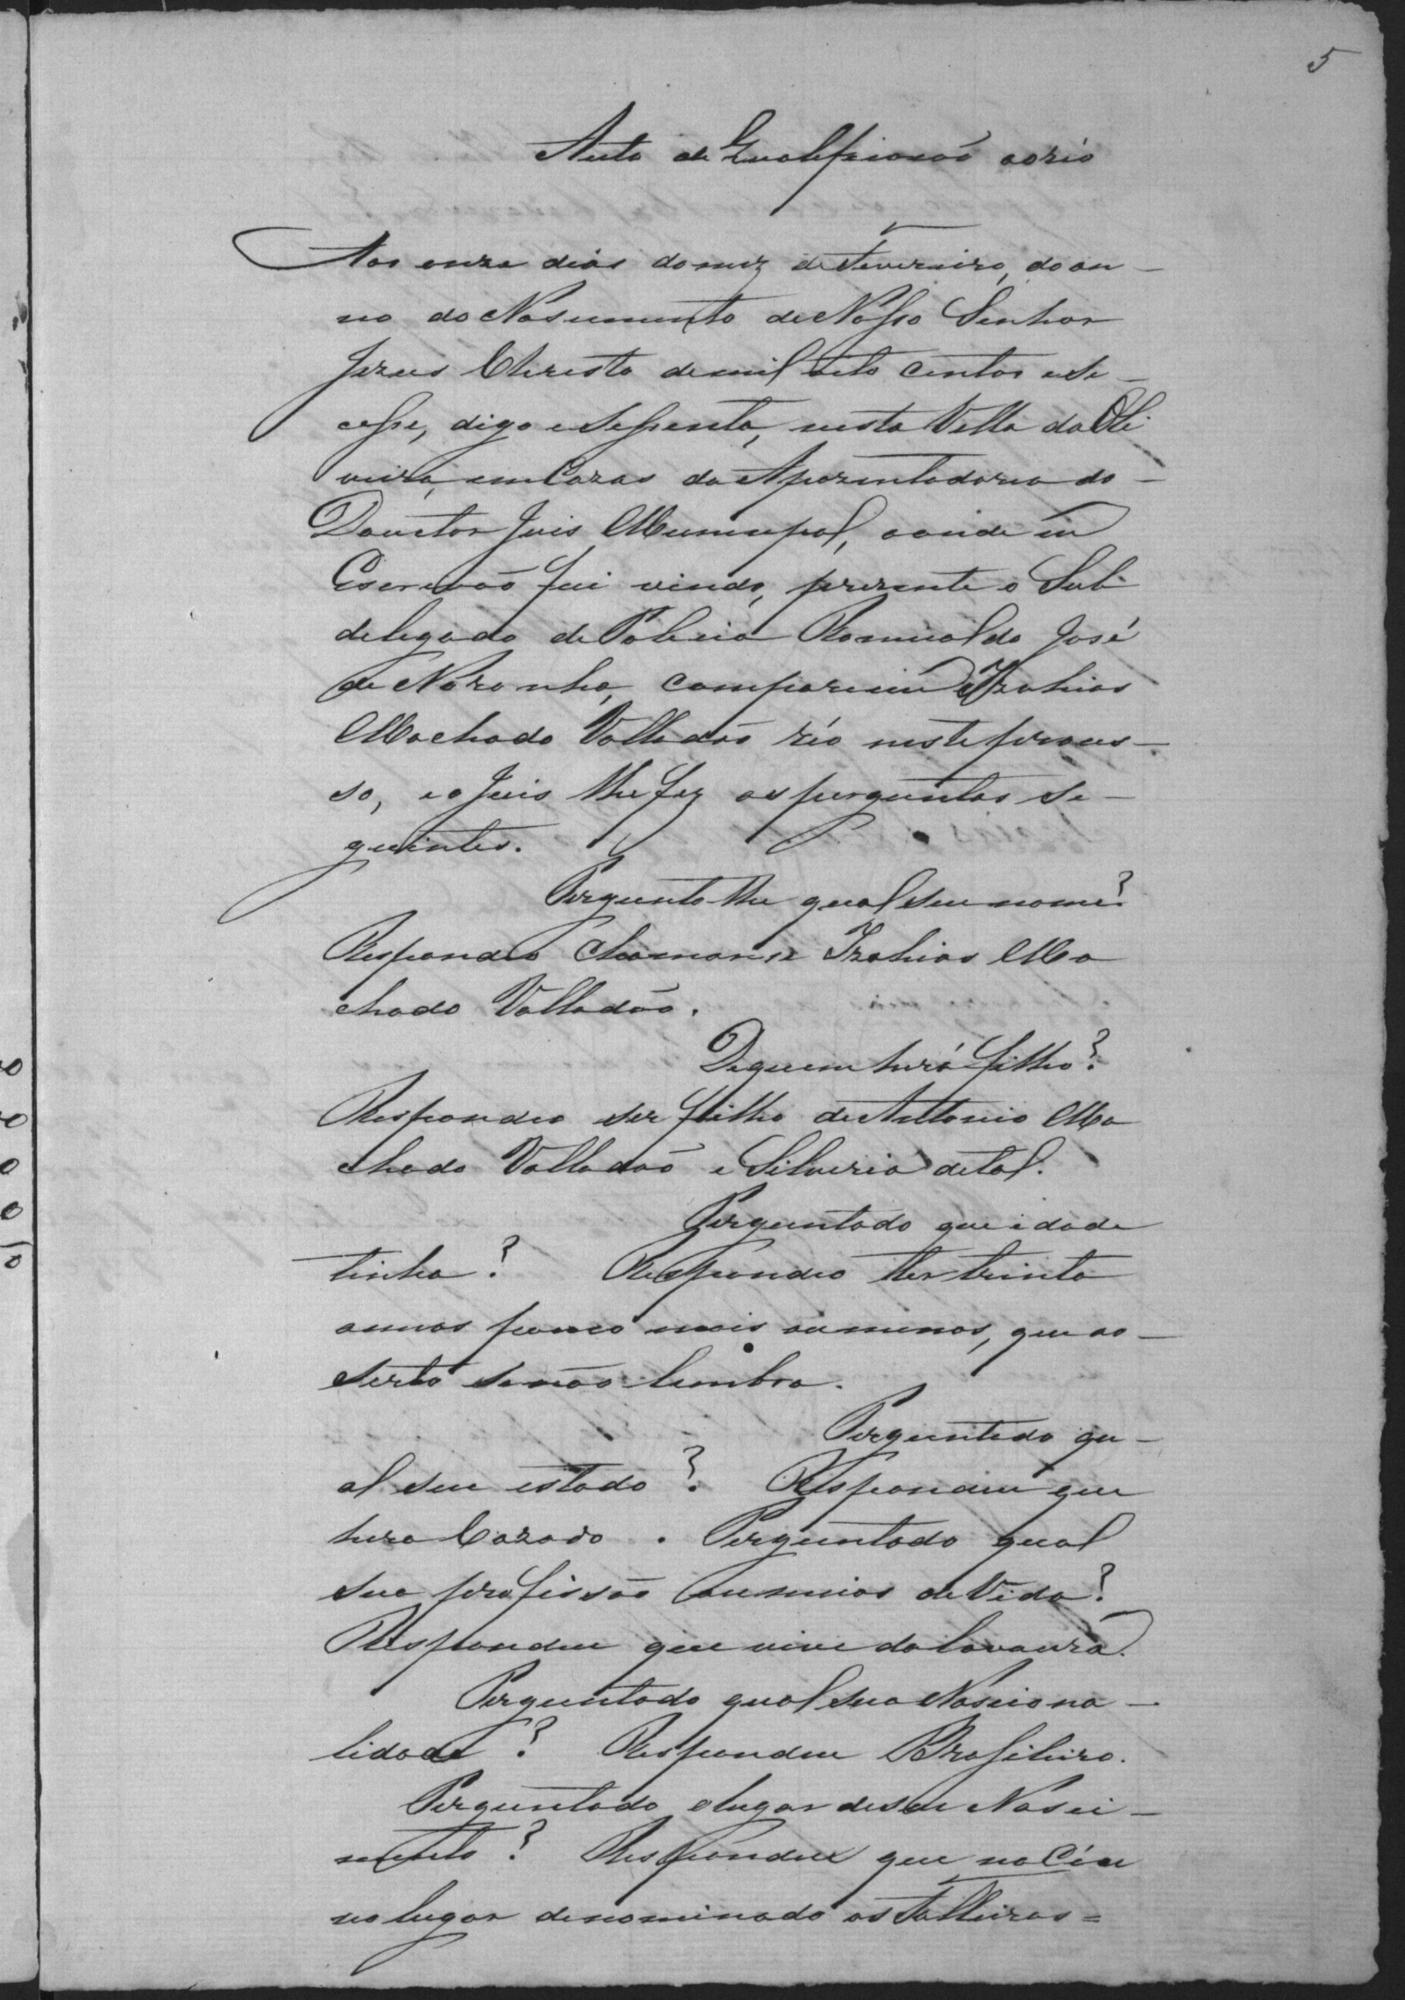 5
Auto de Qualificacaõ ao réo
Aos onze dias do mez de Fevereiro, do an-
no do Nascimento de Nosso Senhor
Jezus Christo de mil oito centos e se-
cesse, digo e sessenta, nesta Villa da Oli
veira, em Cazas da Apozentadoria do
Douctor Juis Municipal, aonde eu
Escrivaõ fui vindo, prezente o Sub
delegado de Policia Romualdo José
de Noronha, compareceu Izahias
Machado Valladaõ réo neste proces-
so, e o Juis lhe fez as perguntas se-
guintes.
Pergunto lhe qual seu nome?
Respondeo chamarse Izahias Ma
chado Valladaõ.
De quem hera filho?
Respondeo ser filho de Antonio Ma
chado Valladaõ e Silveria de tal.
Perguntado que idade
tinha? Respondeo ter trinta
annos pouco mais ou menos, que ao
serto se naõ lembra.
Perguntado qu-
al seu estado? Respondeu que
hera Cazado. Perguntado qual
sua profissaõ ou meios de Vida?
Respondeu que vive da lavoura.
Perguntado qual sua Nasciona-
lidade? Respondeu Brasileiro.
Perguntado o lugar de seu Nasci-
mento? Respondeu que no
no lugar denominado os Talheiros=